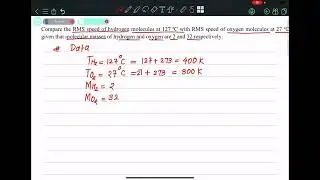 Compare the RMS speed of hydrogen molecules at 127 °C with RMS speed of oxygen molecules at 27 °C
given that molecular masses of hydrogen and oxygen are 2 and 32 respectively.
# Data
T_H₂ = 127°C = 127 + 273 = 400 K
T_O₂ = 27°C = 27 + 273 = 300 K
M_H₂ = 2
M_O₂ = 32